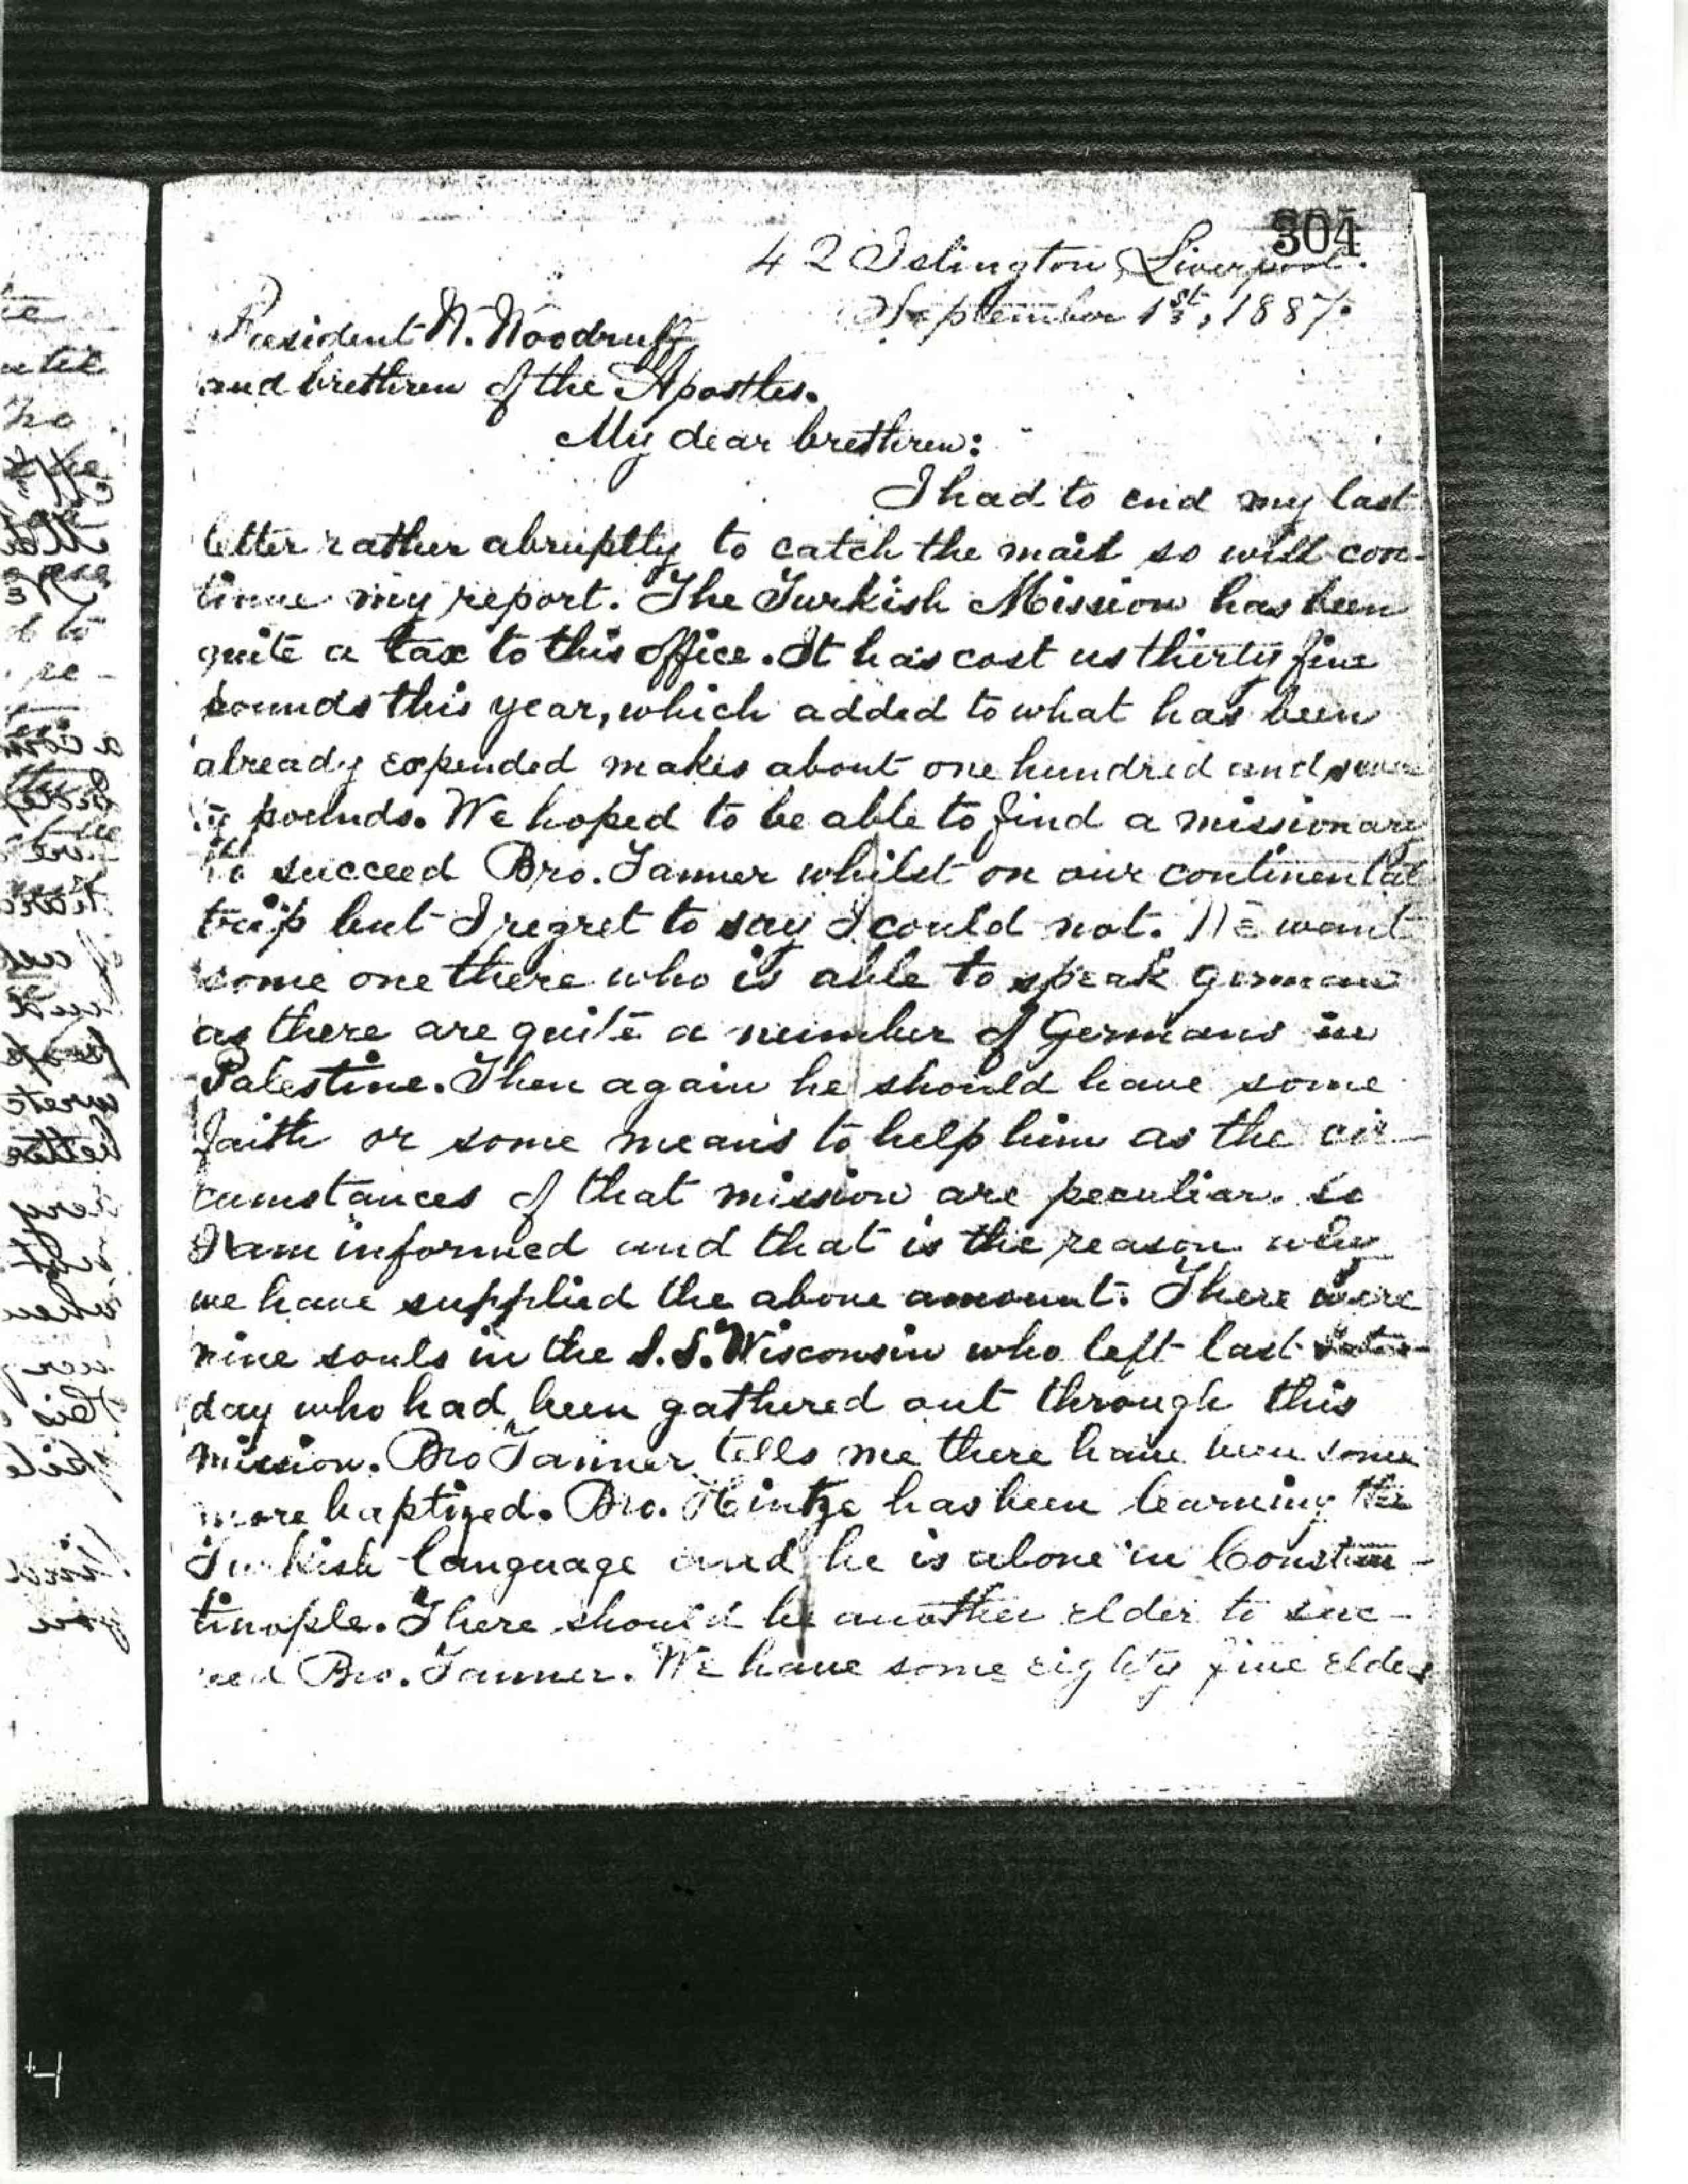 304
42 Islington, Liverpool.
September 1st, 1887.
President W. Woodruff
and brethren of the Apostles.
My dear brethren:
I had to end my last
letter rather abruptly to catch the mail so will con-
tinue my report. The Turkish Mission has been
quite a tax to this office. It has cost us thirty five
pounds this year, which added to what has been
already expended makes about one hundred and
pounds. We hoped to be able to find a missionary
to succeed Bro. Tanner whilst on our continental
trip but I regret to say I could not. We want
some one there who is able to speak german
as there are quite a number of Germans in
Palestine. Then again he should have some
faith or some means to help him as the cir-
cumstances of that mission are peculiar. So
I am informed and that is the reason why
we have supplied the above amount. There were
nine souls in the S.S. Wisconsin who left last Satur-
day who had been gathered out through this
mission. Bro Tanner tells me there have been some
more baptized. Bro. Hintze has been learning the
Turkish language and he is alone in Constan-
tinople. There should be another elder to suc-
ceed Bro. Tanner. We have some eighty five elders
4